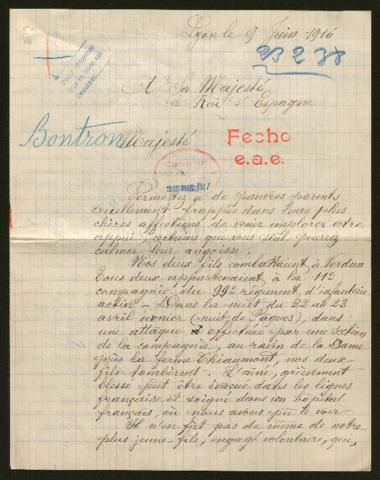 Lyon le 9 Juin 1916
23238
A Sa Majesté
le Roi d'Espagne
Bontron
Majesté
Fecho
e.a.e.
Permettez à de pauvres parents
cruellement frappés dans leurs plus
chères affections de venir implorer votre
appui, certains que vous seul pourrez
calmer leur angoisse.
Nos deux fils combattaient à Verdun
tous deux appartenaient à la 11e
compagnie du 99e régiment d'infanterie
active - Dans la nuit du 22 au 23
avril dernier (nuit de Pâques), dans
une attaque effectuée par une section
de la compagnie, au ravin de la Dame
près la ferme Thiaumont, nos deux
fils tombèrent. L'aîné, grièvement
blessé put être évacué dans les lignes
française et soigné dans un hôpital
français, où nous avons pu le voir -
Il n'en fut pas de même de notre
plus jeune fils, engagé volontaire, qui,